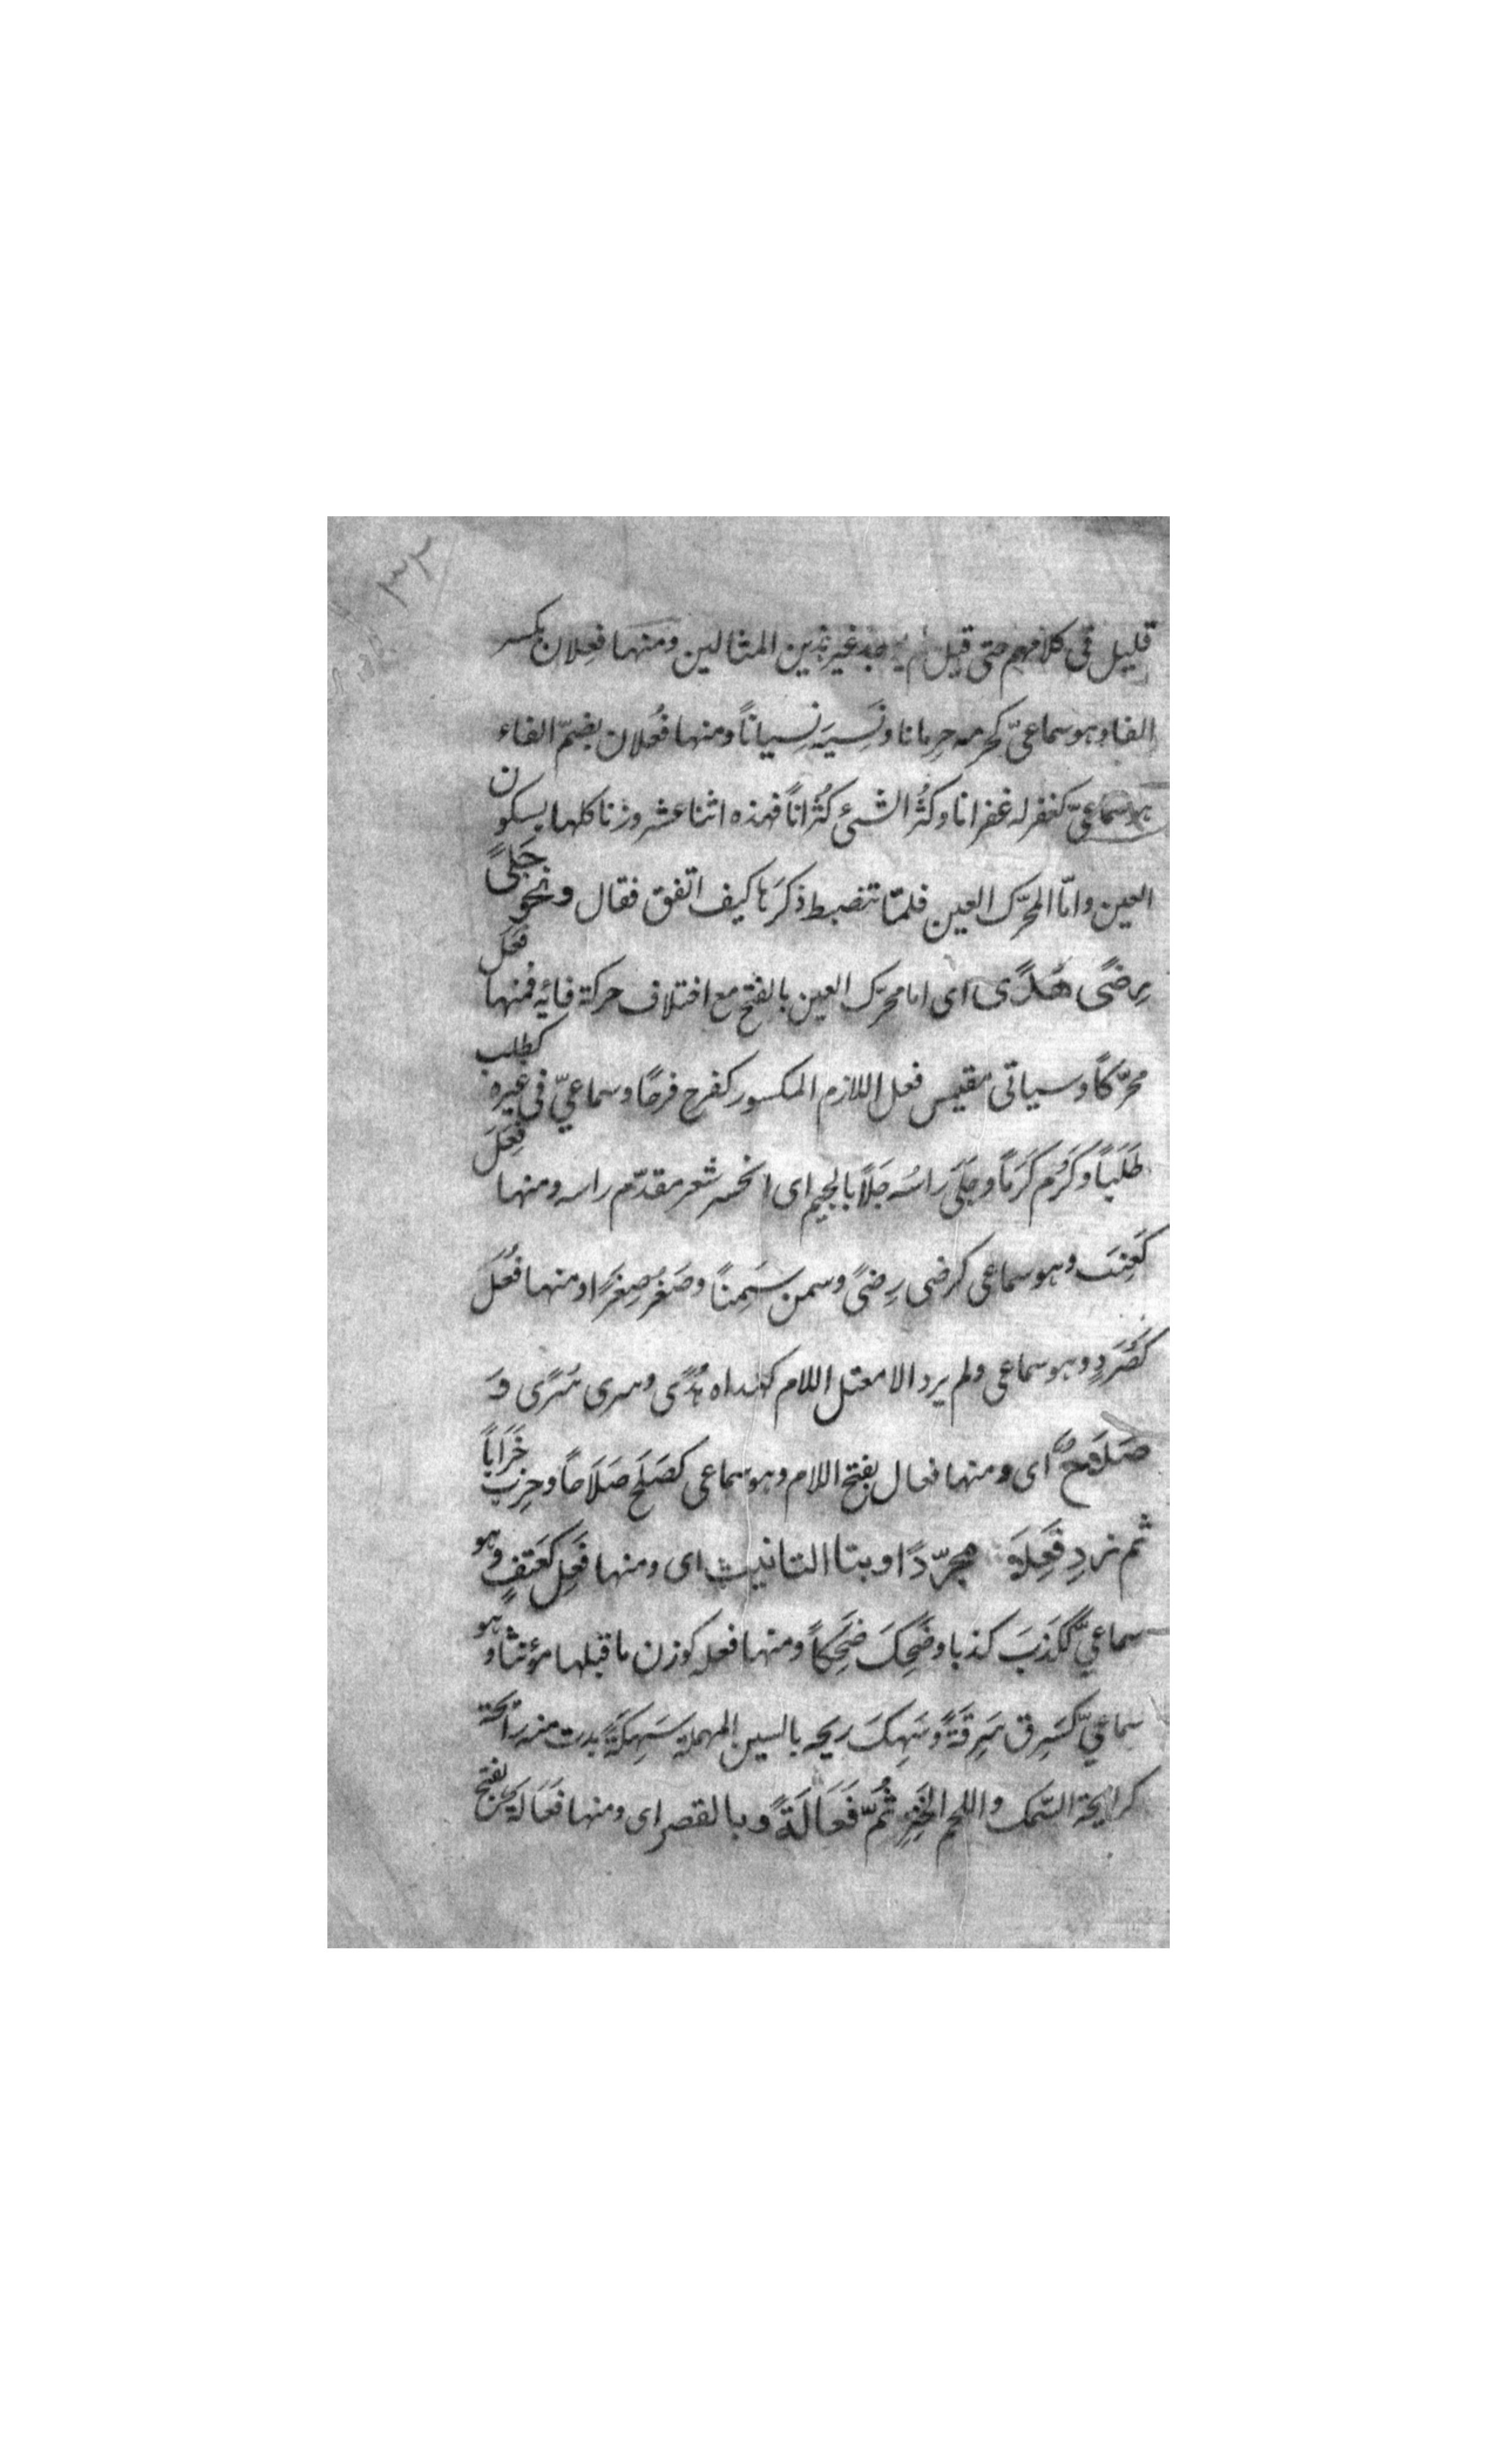 ٣٢
قليل فى كلامهم حتى قيل لم يوجد غير هذين المثالين ومنها فِعلان بكسر
الفاء وهو سماعىّ كحرمه حِرمانا ونَسِيَه نِسياناً ومنها فُعلان بضمّ الفاء
هو سماعىّ كغفر له غفرانا وكثُر الشىء كُثْراناً فهذه اثنا عشر وزنا كلها بسكون
العين وامّا المحرّك العين فلمّا تنضبط ذكرَها كيف اتفق فقال ونحو جَلىً
رِضىً هُدًى اى اما محرّك العين بالفتح مع اختلاف حركة فائه فمنها فَعَل
محرّكاً وسياتى مقيس فعل اللازم المكسور كفرح فرحًا وسماعىّ فى غيره كطلب
طَلَباً وكَرُم كَرَماً وجَلَىَ راسُه جَلًا بالجيم اى انحسر شعر مقدّم راسه ومنها فِعَلَ
كَعِنَب وهو سماعى كرضى رِضىً وسمن سِمَناً وصَغُر صِغَرًا ومنها فُعَل
كَصُرَدٍ وهو سماعى ولم يرد الا معتل اللام كهداه هُدًى وسرى سُرًى وَ
صَلَاحٌ اى ومنها فعال بفتح اللام وهو سماعى كصَلَح صَلَاحًا وخرِب خَرَاباً
ثم زِدِ فَعِلَة مجرّدًا او بتا التانيث اى ومنها فَعِل كَكَتِفٍ وهو
سماعىٌّ ككَذَبَ كذبا وضَحِكَ ضَحِكاً ومنها فعله كوزن ما قبلها مؤنثا وهو
سماعىّ كسَرِق سَرِقَةً وسَهِكَ ريحه بالسين المهملة سَهِكَةً بدت منه رائحة
كرايحة السَّمك واللحم الخنِز ثُمّ فَعَالَةً وبالقصر اى ومنها فَعَالَة بفتح